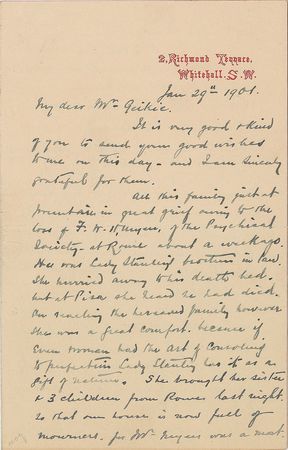 2, Richmond Terrace,
Whitehall. S.W.
Jan 29th 1901.
My dear Mrs Geikie.
It is very good & kind
of you to send your good wishes
to me on this day - and I am sincerely
grateful for them.
All this family just at
present are in great grief owing to the
loss of F. W. H. Myers, of the Psychical
Society - at Rome about a week ago.
He was Lady Stanley's brother in law.
She hurried away to his death bed.
but at Pisa she heard he had died.
On reaching the bereaved family however
she was a great comfort. because if
ever woman had the art of consoling
to perfection Lady Stanley has it as a
gift of nature. She brought her sister
& 3 children from Rome last night.
so that our house is now full of
mourners. for Mr Myers was a most